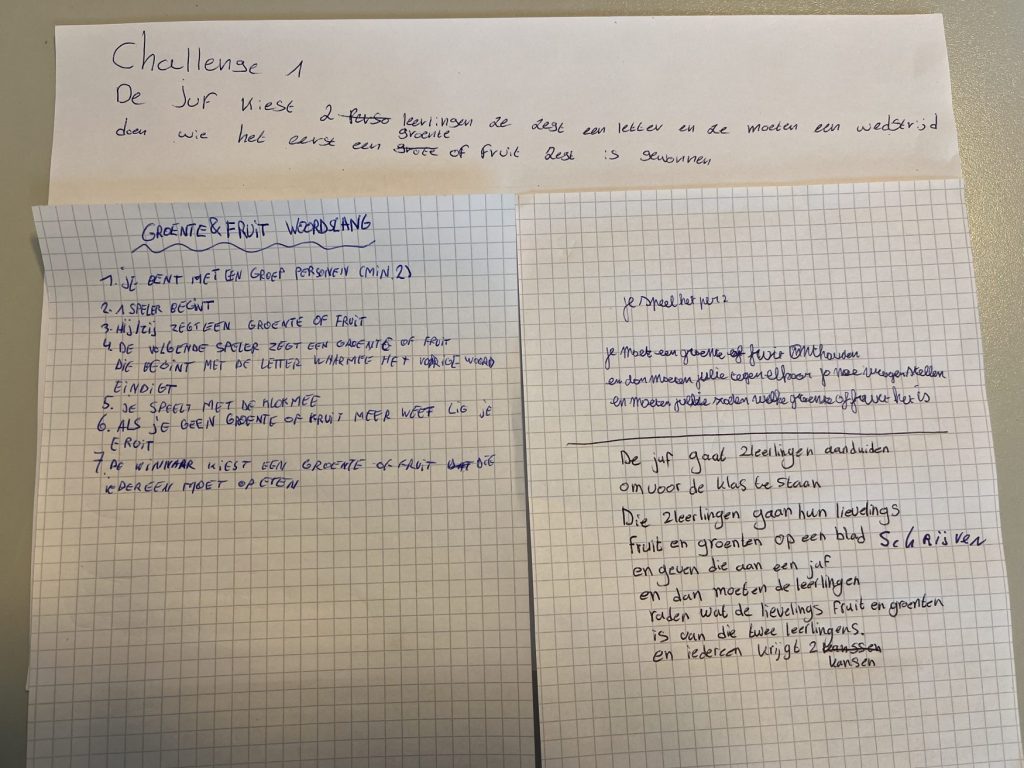 Challenge 1
De juf kiest 2 perso leerlingen ze zegt een letter en ze moeten een wedstrijd
doen wie het eerst een grote groente of fruit zegt is gewonnen
GROENTE & FRUIT WOORDSLANG
1. JE BENT MET EEN GROEP PERSONEN (MIN. 2)
2. 1 SPELER BEGINT
3. HIJ/ZIJ ZEGT EEN GROENTE OF FRUIT
4. DE VOLGENDE SPELER ZEGT EEN GROENTE OF FRUIT
DIE BEGINT MET DE LETTER WAARMEE HET VORIGE WOORD
EINDIGT
5. JE SPEELT MET DE KLOK MEE
6. ALS JE GEEN GROENTE OF FRUIT MEER WEET LIG JE
ERUIT
7. DE WINNAAR KIEST EEN GROENTE OF FRUIT DIE
IEDEREEN MOET OPETEN
je speel het per 2
je moet een groente of fruit onthouden
en dan moeten jullie tegen elkaar ja nee vragen stellen
en moeten jullie raden welke groente of het is
De juf gaat 2 leerlingen aanduiden
om voor de klas te staan
Die 2 leerlingen gaan hun lievelings
fruit en groenten op een blad schrijven
en geven die aan een juf
en dan moeten de leerlingen
raden wat de lievelings fruit en groenten
is van die twee leerlingens.
en iedereen krijgt 2 kanssen
kansen